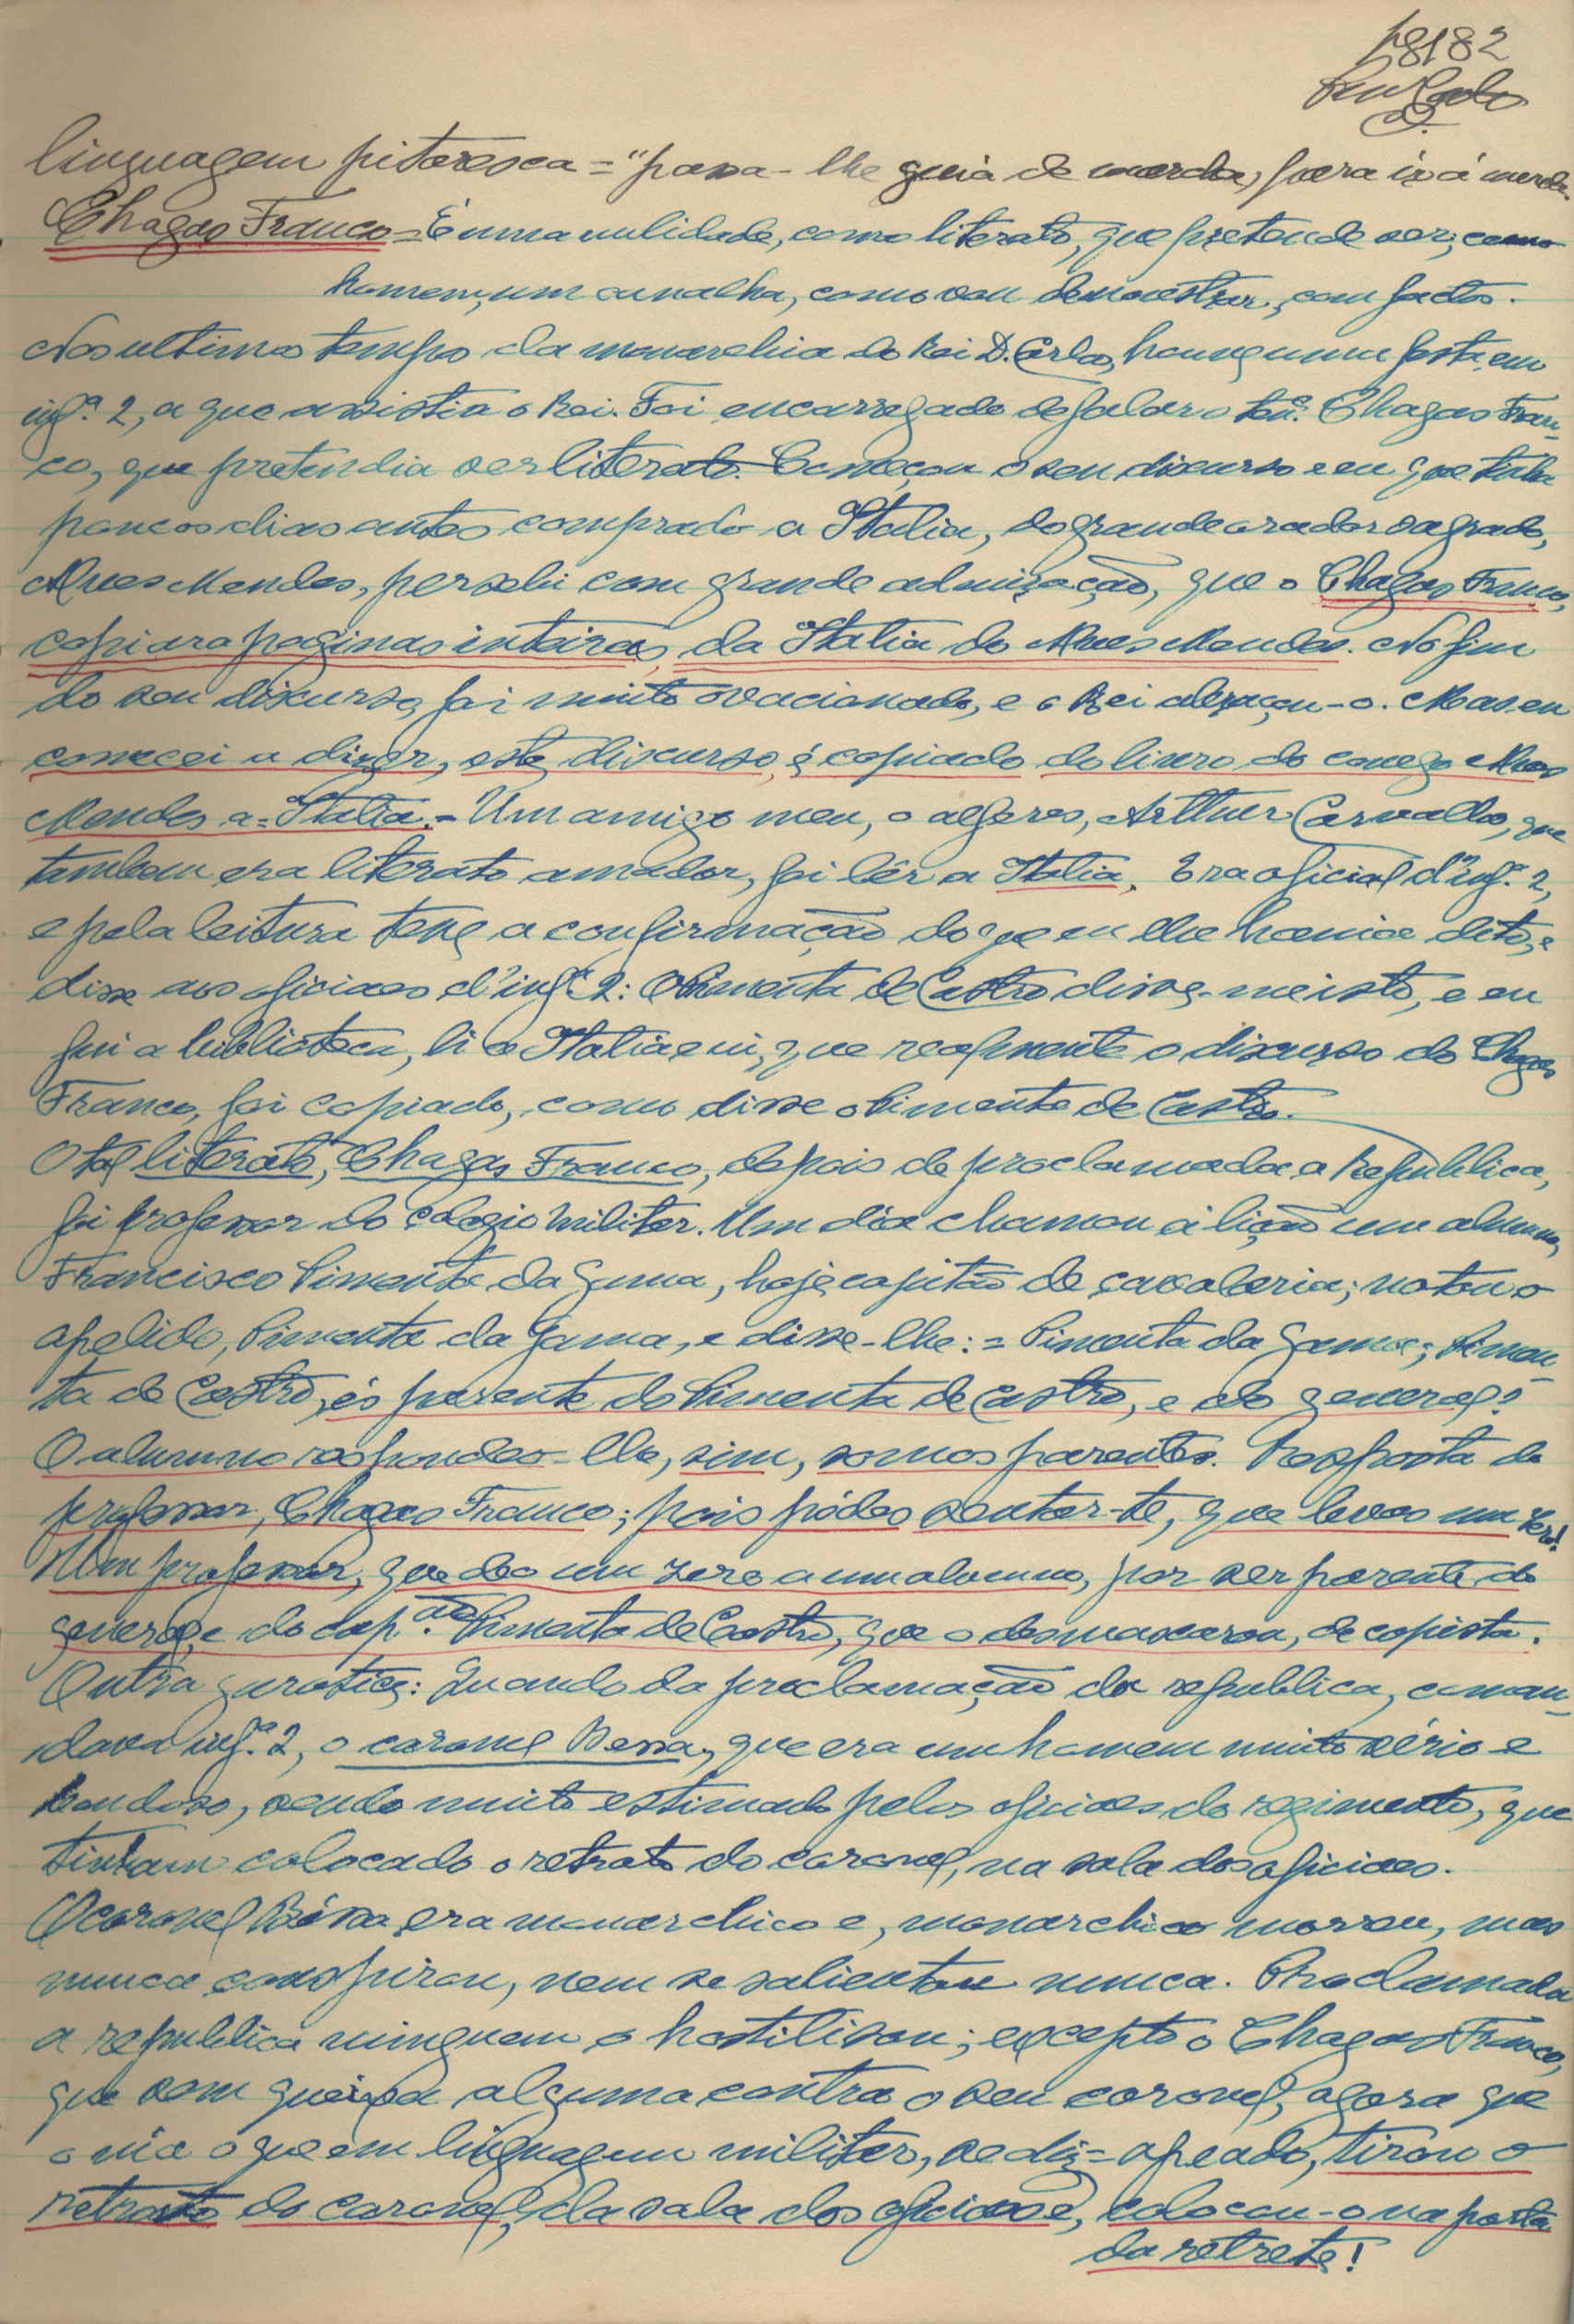 18182
linguagem pitoresca = "passa-lhe guia de marcha, para ir á merda.
Chagas Franco = É uma nulidade, como literato, que pretende ser; como
homem, um canalha, como vou demonstrar, com factos.
Nos ultimos tempos da monarchia do Rei D. Carlos, houve uma festa em
inf.ª 2, a que assistia o Rei. Foi encarregado de falar o ten.e Chagas Fran-
co, que pretendia ser literato. Começou o seu discurso e eu que tinha
poucos dias antes comprado a Italia, do grande orador sagrado,
Alves Mendes, percebi com grande admiração, que o Chagas Franco,
copiara paginas inteiras, da Italia do Alves Mendes. No fim
do seu discurso, foi muito ovacionado, e o Rei abraçou-o. Mas eu
comecei a dizer, este discurso, é copiado do livro do conego Alves
Mendes a = Italia. - Um amigo meu, o alferes, Arthur Carvalho, que
tambem era literato amador, foi lêr a Italia. Era oficial d'inf.ª 2,
e pela leitura teve a confirmação do que eu lhe havia dito, e
disse aos oficiaes d'inf.ª 2: O Pimenta de Castro disse-me isto, e eu
fui a biblioteca, li a Italia e vi, que realmente o discurso do Chagas
Franco, foi copiado, como disse o Pimenta de Castro.
O tal literato, Chagas Franco, depois de proclamada a Republica,
foi professor do colegio militar. Um dia chamou á lição um alumno,
Francisco Pimenta da Gama, hoje capitão de cavalaria; notou o
apelido, Pimenta da Gama, e disse-lhe: = Pimenta da Gama; Pimen-
ta de Castro, és parente do Pimenta de Castro, e do general?
O alumno respondeo-lhe, sim, somos parentes. Resposta do
professor, Chagas Franco; pois pódes sentar-te, que levas um zero!
Um professor, que deo um zero a um alumno, por ser parente do
general, e do cap.ão Pimenta de Castro, que o desmascarou, de copista.
Outra garotice: Quando da proclamação da republica, coman-
dava inf.ª 2, o coronel Bessa, que era um homem muito sério e
bondoso, sendo muito estimado pelos oficiaes do regimento, que
tinham colocado o retrato do coronel, na sala dos oficiaes.
O coronel Béssa era monarchico e, monarchico morreu, mas
nunca conspirou, nem se salientou nunca. Proclamada
a republica ninguem o hostilisou; excepto o Chagas Franco,
que sem queixa alguma contra o seu coronel, agora que
o via o que em linguagem militar, se diz = apeado, tirou o
retrato do coronel, da sala dos oficiaes e, colocou-o na porta
da retrete!